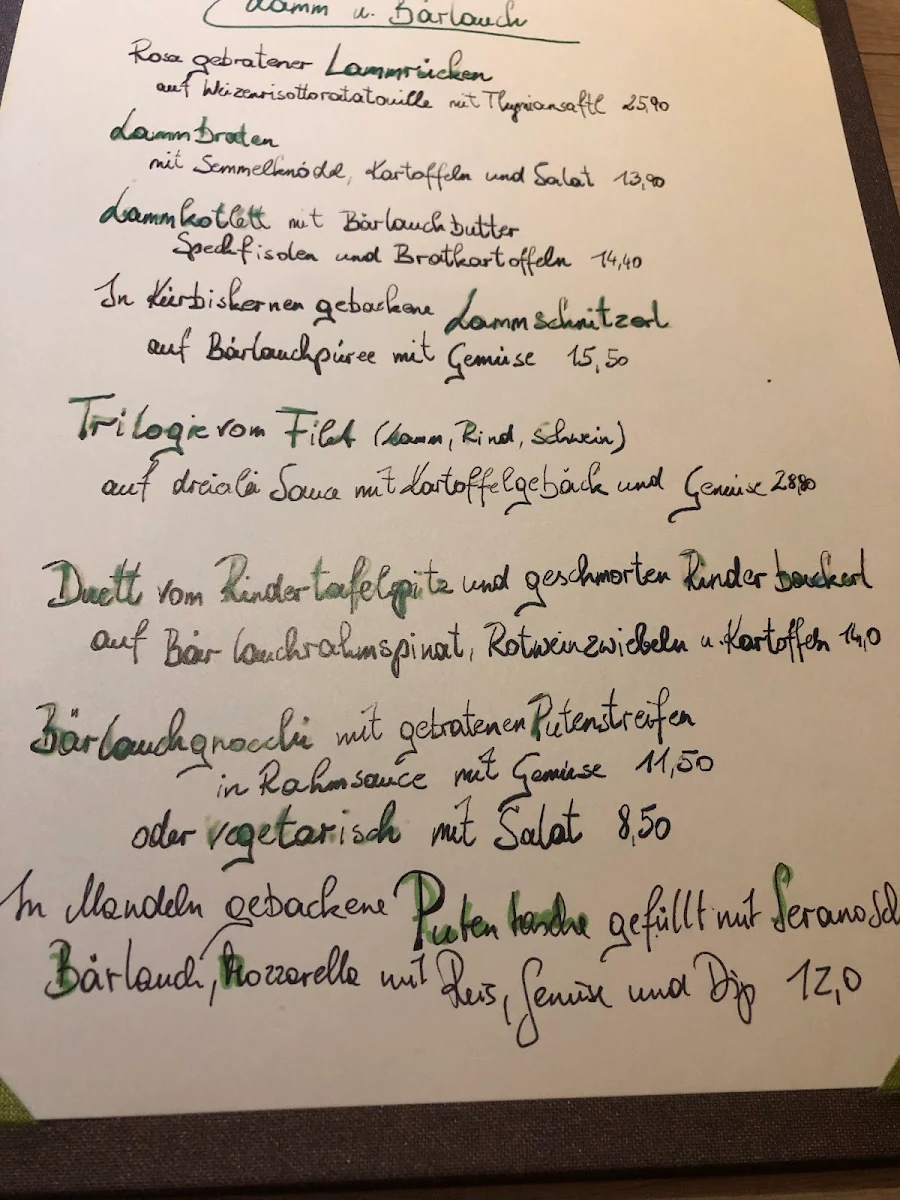 Lamm u. Bärlauch
Rosa gebratener Lammrücken
auf Weizenrisottoratatouille mit Thymiansaftl 25,90
Lammbraten
mit Semmelknödel, Kartoffeln und Salat 13,90
Lammkotlett mit Bärlauchbutter
Speckfisolen und Bratkartoffeln 14,40
In Kürbiskernen gebackene Lammschnitzerl
auf Bärlauchpüree mit Gemüse 15,50
Trilogie vom Filet (Lamm, Rind, Schwein)
auf dreialei Sauce mit Kartoffelgebäck und Gemüse
Duett vom Rindertafelspitz und geschmorten Rinderbackerl
auf Bärlauchrahmspinat, Rotweinzwiebeln u. Kartoffeln 14,0
Bärlauchgnocchi mit gebratenen Putenstreifen
in Rahmsauce mit Gemüse 11,50
oder vegetarisch mit Salat 8,50
In Mandeln gebackene Putentasche gefüllt mit Serano
Bärlauch, Mozzarella mit Reis, Gemüse und Dip 12,0